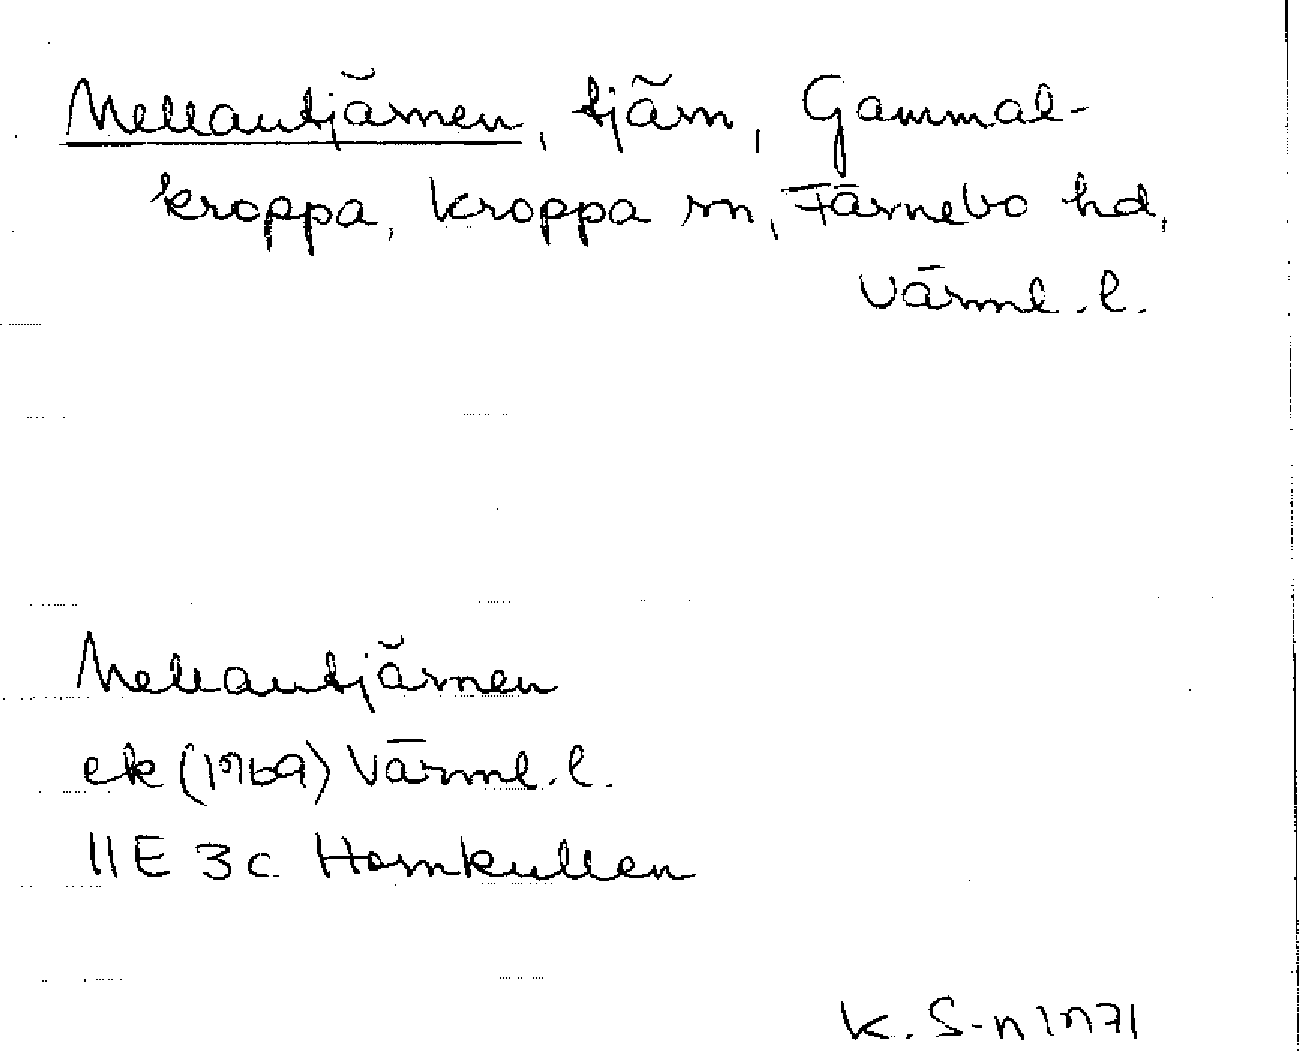 Mellantjärnen, tjärn, Gammal-
kroppa, Kroppa sn, Färnebo hd,
Värml. l.
Mellantjärnen
ek (1969) Värml. l.
11E 3c Hornkullen
K. S-n 1971